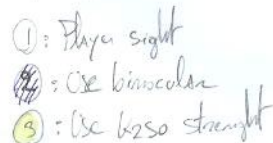 ①: Player sight
: Use binocular
③: Use K2SO strenght